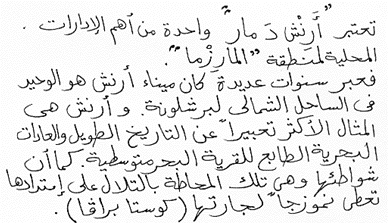 تعتبر "أَرَنْش دَ مار" واحدة من أهم الإدارات .
المحلية لمنطقة "المارَزْما".
فعبر سنوات عديدة كان ميناء أرنش هو الوحيد
في الساحل الشمالى لبرشلونة. و أرنش هى
المثال الأكثر تعبيراً عن التاريخ الطويل والعادات
البحرية الطابع للقرية البحرمتوسطية. كما أن
شواطئها وهى تلك المحاطة بالتلال على إمتدادها
تعطى نموزجاً لجارتها (كوستا براڤا).